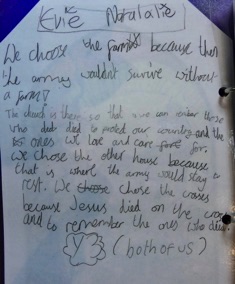 Evie Natalie
We choose the farm because then
the army wouldn't survive without
a farm
The church is there so that we can rember those
who died died to protect our country and the
ones we love and care for.
We chose the other house because
that is where the army would stay &
rest. We chose the crosses
because Jesus died on the cross
and to remember the ones who died.
Y (both of us)